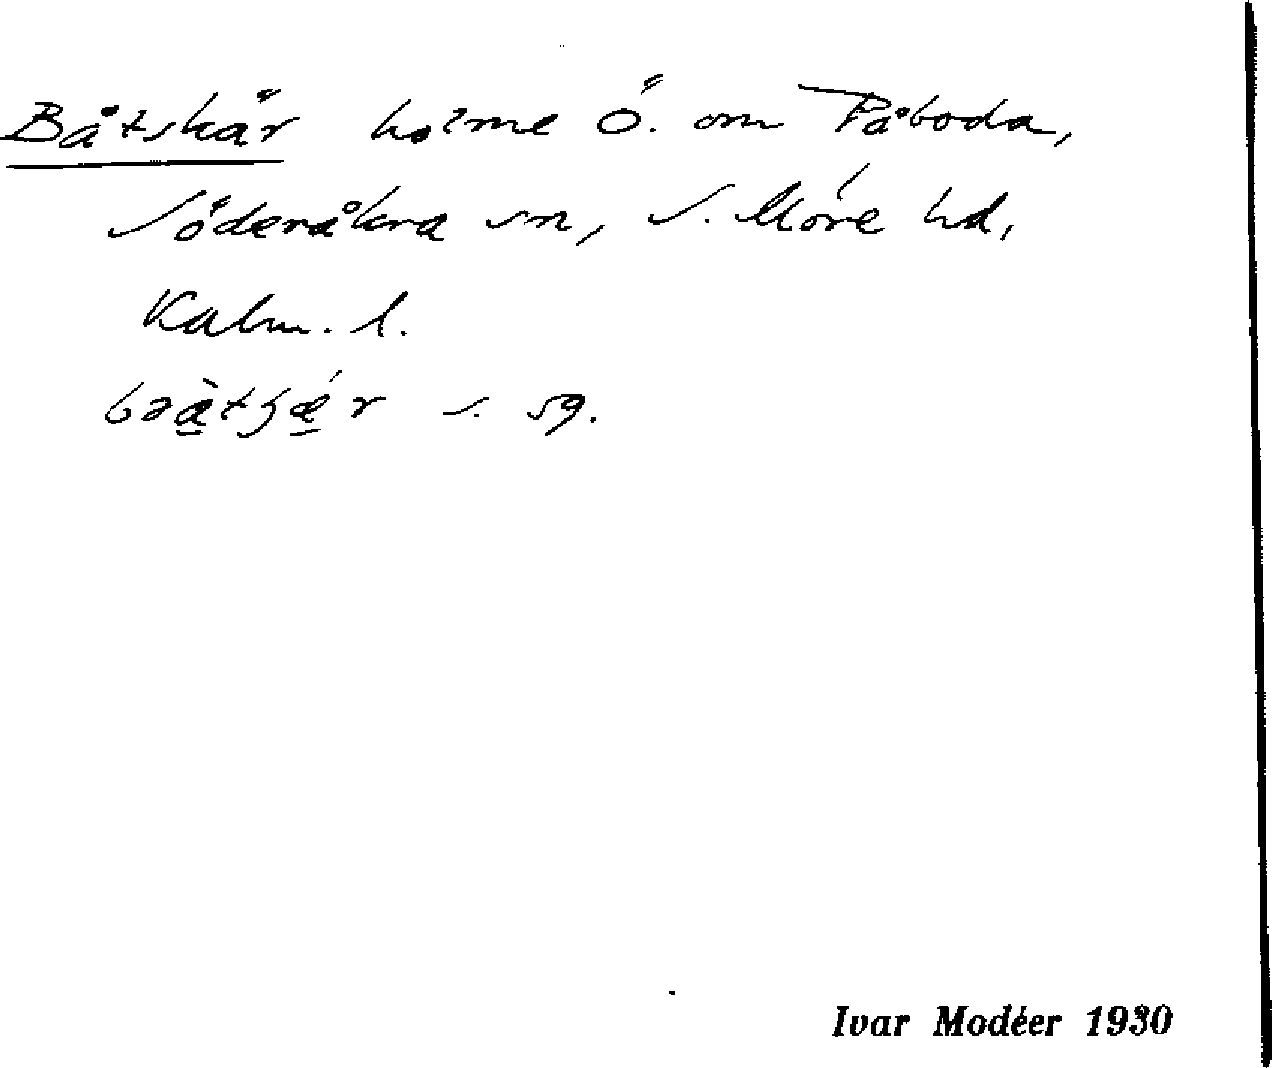 Båtskär holme Ö. om Påboda,
Söderåkra sn, S. Möre hd,
Kalm. l.
s. sg.
Ivar Modéer 1930